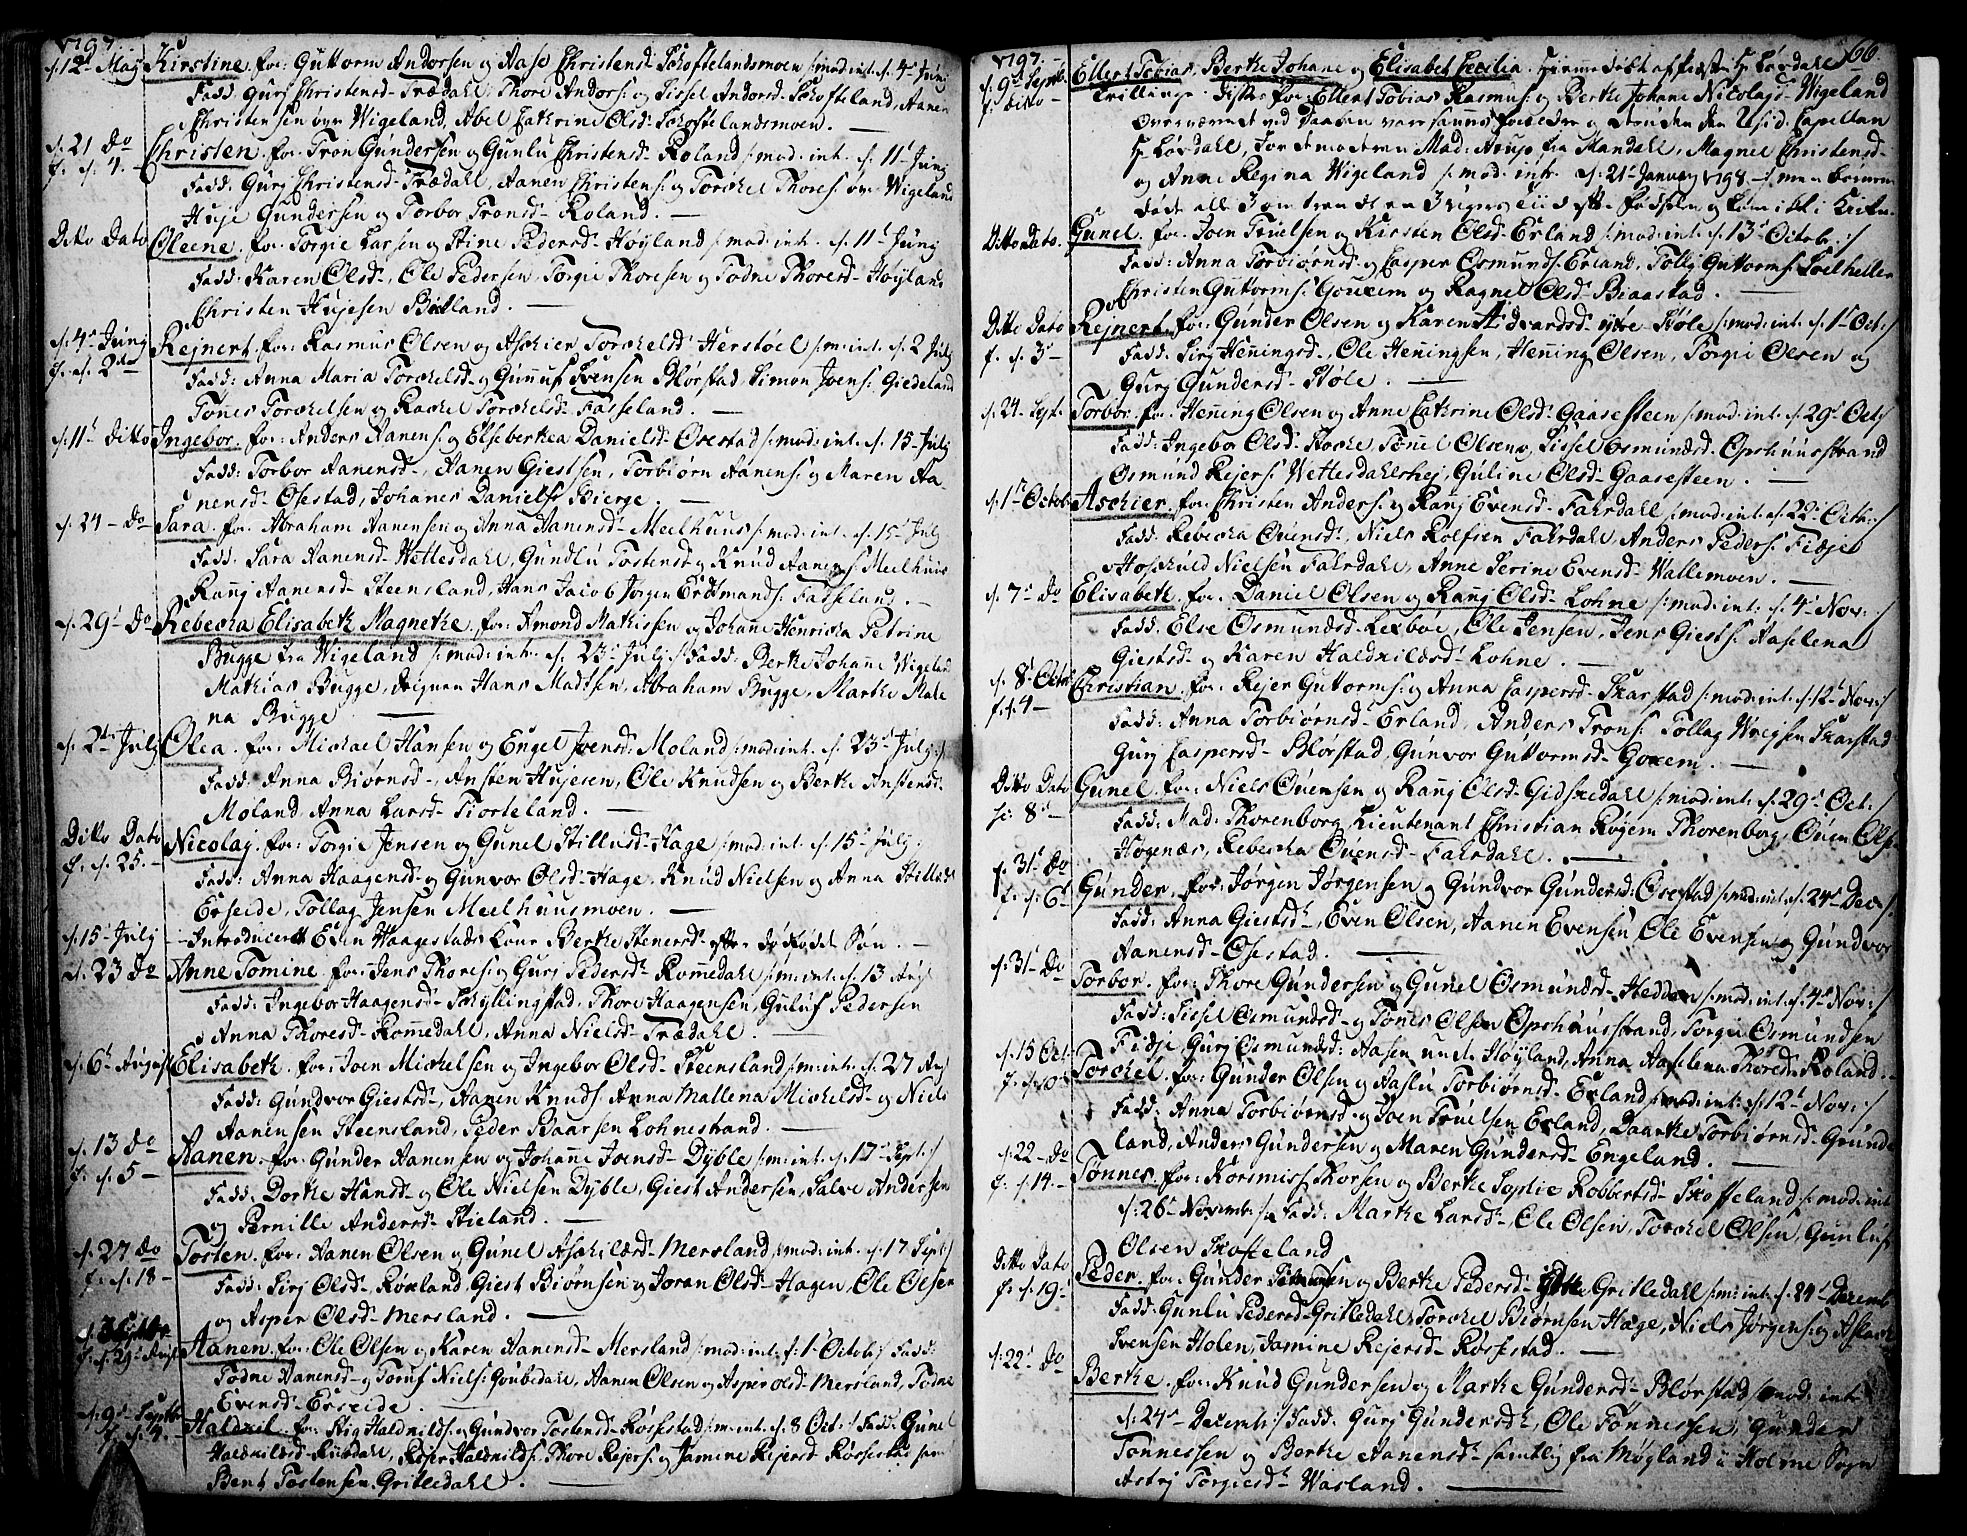 1797.
d. 12t May Kirstine. for: Guttorm Andersen og Aase Christensd. Schoftelandsmoen /: mod: int. d. 4de Junj
Fadd: Gurj Christensd. Trædahl, Thore Anders: og Sissel Andersd. Schofteland, Aanen
Christensen øvr Wigeland, Abel Cathrine Olsd. Schoftelandsmoen.
d. 21 do Christen. for: Tron Gundersen og Gunlu Christensd. Roland /: mod: int. d. 11t Junj
f. d. 4. Fadd: Gurj Christensd. Trædahl, Aanen Christens: og Torchel Thores: øvr Wigeland
Huje Gundersen og Torbor Tronsd. Roland.
Ditto Dato Oleene. for: Torgie Larsen og Stine Pedersd. Høyland /: mod: int. d. 11t Junj
Fadd: Karen Olsd., Ole Pedersen, Torgie Thoresen og Todne Thoresd. Høyland
Christen Hujesen
d. 4de Junj Rejnert. for: Rasmus Olsen og Aschier Torchelsd. Herstøel /: m: int. d. 2 Julj
f. d. 2den Fadd: Anna Maria Torchelsd. og Gunnuf Svensen Blørstad, Simon Joens: Giedeland
Tønes Torchelsen og Rachel Torchelsd. Fasseland.
d. 11t ditto Ingebor. for: Anders Aanens: og Elseberthea Danielsd. Osestad /: mod: int. d. 15 Julj
Fadd: Torbor Aanensd., Aanen Giestsen, Torbiørn Aanens: og Maren Aa
nensd. Osestad, Johanes Daniels: Bierge.
d. 24 do Sara. for: Abraham Aanensen og Anna Aanensd. Meelhuus /: mod: int. d. 15 Julj
Fadd: Sara Aanensd. Wettesdahl, Gundlu Tostensd. og Knud Aanens: Meelhuus
Ranj Aanensd. Steensland, Hans Jacob Jørgen Erdtmands: Fasseland.
d. 29t do Rebecka Elisabeth Magnethe. for: Amond Mathissen og Johane Henricka Petrine
Bugge fra Wigeland /: mod: int. d. 23. Julj :/ Fadd: Berthe Johane Wigeland
Mathias Bugge, Hans Madtsen, Abraham Bugge, Marthe Male
na Bugge
d. 2den Julj Olea. for: Michael Hansen og Engel Joensd. Moland /: mod: int. d. 23d Julj :/
Fadd: Anna Biørnsd., Ansten Hujesen, Ole Knudsen og Berthe Anstensd.
Moland, Anna Larsd. Tiorteland.
Ditto Dato Nicolaj. for: Torgie Jensen og Gunel Stillufsd. Hage /: mod: int. d. 15 Julj
f. d. 25. Fadd: Anna Haagensd. og Gunvor Olsd. Hage, Knud Nielsen og Anna Stillufsd.
Erseide, Tollag Jensen Meelhuusmoen.
d. 15 Julj Introduceret Even Haagestads Kone Berthe Stenersd. efter dødfødt Søn.
d. 23 do Anne Tomine. for: Jens Thores: og Gurj Pedersd. Romedahl /: m: int. d. 13 Aug:
Fadd: Ingebor Haagensd. Schyllingstad, Thore Haagensen, Guluf Pedersen
Anna Thoresd. Romedahl, Anna Nielsd. Trædahl.
d. 6t August Elisabeth. for: Joen Michelsen og Ingebor Olsd. Steensland /: m: int. d. 27 Aug
Fadd: Gundvor Giestsd., Aanen Knuds: Anna Mallena Michelsd. og Niels
Aanensen Steensland, Peder Baarsen Lohnestrand.
d. 13 do Aanen. for: Gunder Aanensen og Johane Joensd. Dyble /: m: int. d. 17 Sept :/
f. d. 5 Fadd: Dorthe Hansd. og Ole Nielsen Dyble, Giest Andersen, Salve Andersen
og Pernille Andersd. Stieland.
d. 27 do Tosten. for: Aanen Olsen og Gunel Aschildsd. Mersland /: mod: int. d. 17 Sept :/
f. d. 18 Fadd: Sirj Olsd. Røxland, Giest Biørnsen og Joran Olsd. Hagen, Ole Olsen
og Asper Olsd. Mersland.
f. d. 29 Aug: Aanen. for: Ole Olsen og Karen Aanensd. Mersland /: mod: int. d. 1t Octob: / Fadd:
Todne Aanensd. og Toruf Niels: Goubedahl, Aanen Olsen og Asper Olsd. Mersland, Todne
Evensd. Erseide.
d. 9d Septbr Haldxil. for: Stig Haldxilds: og Gundvor Tostensd. Røsestad /: m: int. d. 8 Oct: / Fadd: Gunel
f. d. 4. Haldxildsd. Risdahl, Rejer Haldxilds: Thore Rejers: og Jamine Rejersd. Røssestad samt
Bent Tostensen Gritledahl.
1797. 66.
d. 9d Septb. Ellert Tobias, Berthe Johane og Elisabet Cecilia. hjemmedøbt af Hr Løvdahl
f. ditto Trillinge. for: Ellert Tobias Rasmus: og Berthe Johane Nicolajsd. Wigeland
Overværet ved Daaben vare Forældre og den Capellan
Hr Lövdahl, Jordemoderen Mad: Arup fra Mandahl, Magnel Christensd.
og Anne Regina Wigeland /: mod: intr. d. 21t Januarj 1798. men børnene
døde alle 3 omtrendt en 3 uger efter fødselen og kom ikke i Kirken
Ditto Dato. Gunel. for: Joen Truelsen og Kirsten Olsd. Erland /: mod: int. d. 13t Octobr. :/
Fadd: Anna Torbiørnsd. og Casper Osmunds: Erland, Tollj Guttorms: Loelheller
Christen Gutorms: Gouxem og Ragnel Olsd. Biaastad.
Ditto Dato Rejnert. for: Gunder Olsen og Karen Ædvardsd. ytre Støle /: mod: int. d. 1t Oct: /
f. d. 3 Fadd: Sirj Heningsd., Ole Heningsen, Hening Olsen, Torgie Olsen og
Gurj Gundersd. Støle.
d. 24. Sept. Torbor. for: Hening Olsen og Anne Cathrine Olsd. Gaaseesteen /: mod: int. d. 29t Oct: /
Fadd: Ingebor Olsd. Stocke, Tønnel Olsen og Sissel Osmundsd. Opshuusstrand
Osmund Rejers: Wettesdahlshej, Guline Olsd. Gaaseesteen.
d. 1t Octob. Aschier. for: Christen Anders: og Ranj Evensd. Fahrdahl /: mod: int. d. 22d Octb: /
Fadd: Rebecka Ovensd., Niels Rolfsen Fahrdahl, Anders Peders: Fidje
Hoschuld Nielsen Fahrdahl, Anne Serine Evensd. Wallemoen.
d. 7t do Elisabeth. for: Daniel Olsen og Ranj Olsd. Lohne /: mod: int: d. 4t Nov: /
Fadd: Else Osmundsd. Lexbøe, Ole Jensen, Jens Giests: Aaselena
Giestsd. og Karen Haldxildsd. Lohne.
d. 8t Octb: Christian. for: Rejer Guttorms: og Anna Caspersd. Skarstad /: mod: int. d. 12t Nov: /
f. d. 4 Fadd: Anna Torbiørnsd. Erland, Anders Trons: Tollag Wrigsen Skarstad
Gurj Caspersd. Blørstad, Gunvor Guttormsd. Goxem.
Ditto Dato Gunel. for: Niels Ovensen og Ranj Olsd. Gidsxedahl /: mod: int: d. 29t Oct: /
f: 8d Fadd: Mad: Thorenborg, Lieutenant Christian Røyem Thorenborg, Ouen Ols:
Høgenæs, Rebecka Ovensd. Fahrdahl.
f. 31t do Gunder. for: Jørgen Jørgensen og Gundvor Gundersd: Osestad /: mod: int. d. 24d Dec: /
f. d. 6t Fadd: Anna Giestsd., Even Olsen, Aanen Evensen, Ole Evensen og Gundvor
Aanensd. Osestad.
d. 31 do Torbor. for: Thore Gundersen og Gunel Osmundsd. Hedden /: mod: int. d. 4d Nov: /
Fadd: Sissel Osmundsd. og Tønes Olsen Opshuusstrand, Torgie Osmundsen
Fidje, Gurj Osmundsd: Aasen unde Høyland, Anna Aaselena Thoresd. Roland.
d. 15 Oct. Torchel. for: Gunder Olsen og Aaslu Torbiørnsd. Erland /: mod: int: d. 12t Nov: /
f. d. 10 Fadd: Anna Torbiørnsd. og Joen Truelsen Erland, Daarthe Torbiørnsd. Grunde
land, Anders Gundersen og Maren Gundersd. Engeland.
d. 22 do Tønnes. for: Korsmis: Thorsen og Berthe Sophie Robbertsd. Skofteland /: mod: int
f. d. 14. d. 26t Novemb: / Fadd: Marthe Larsd., Ole Olsen, Torchel Olsen, Gunluf
Olsen Skofteland
Ditto Dato Peder. for: Gunder og Berthe Pedersd. Gritledahl /: m: int. d. 24t Decemb
f. d. 19. Fadd: Gunlu Pedersd. Gritledahl, Torchel Biørnsen Hage, Niels Jørgens: og Aslach
Svensen Holen, Jamine Rejersd. Røssestad.
d. 22t do Berthe. for: Knud Gundersen og Marthe Gundersd. Blørstad /: mod: int.
d. 24d Decemb: / Fadd: Gurj Gundersd., Ole Tønnessen, Gunder
Tønnessen og Berthe Aanensd. samtlig fra Møgland i Holme Sogn
Astrj Torgiesd. Wasland.